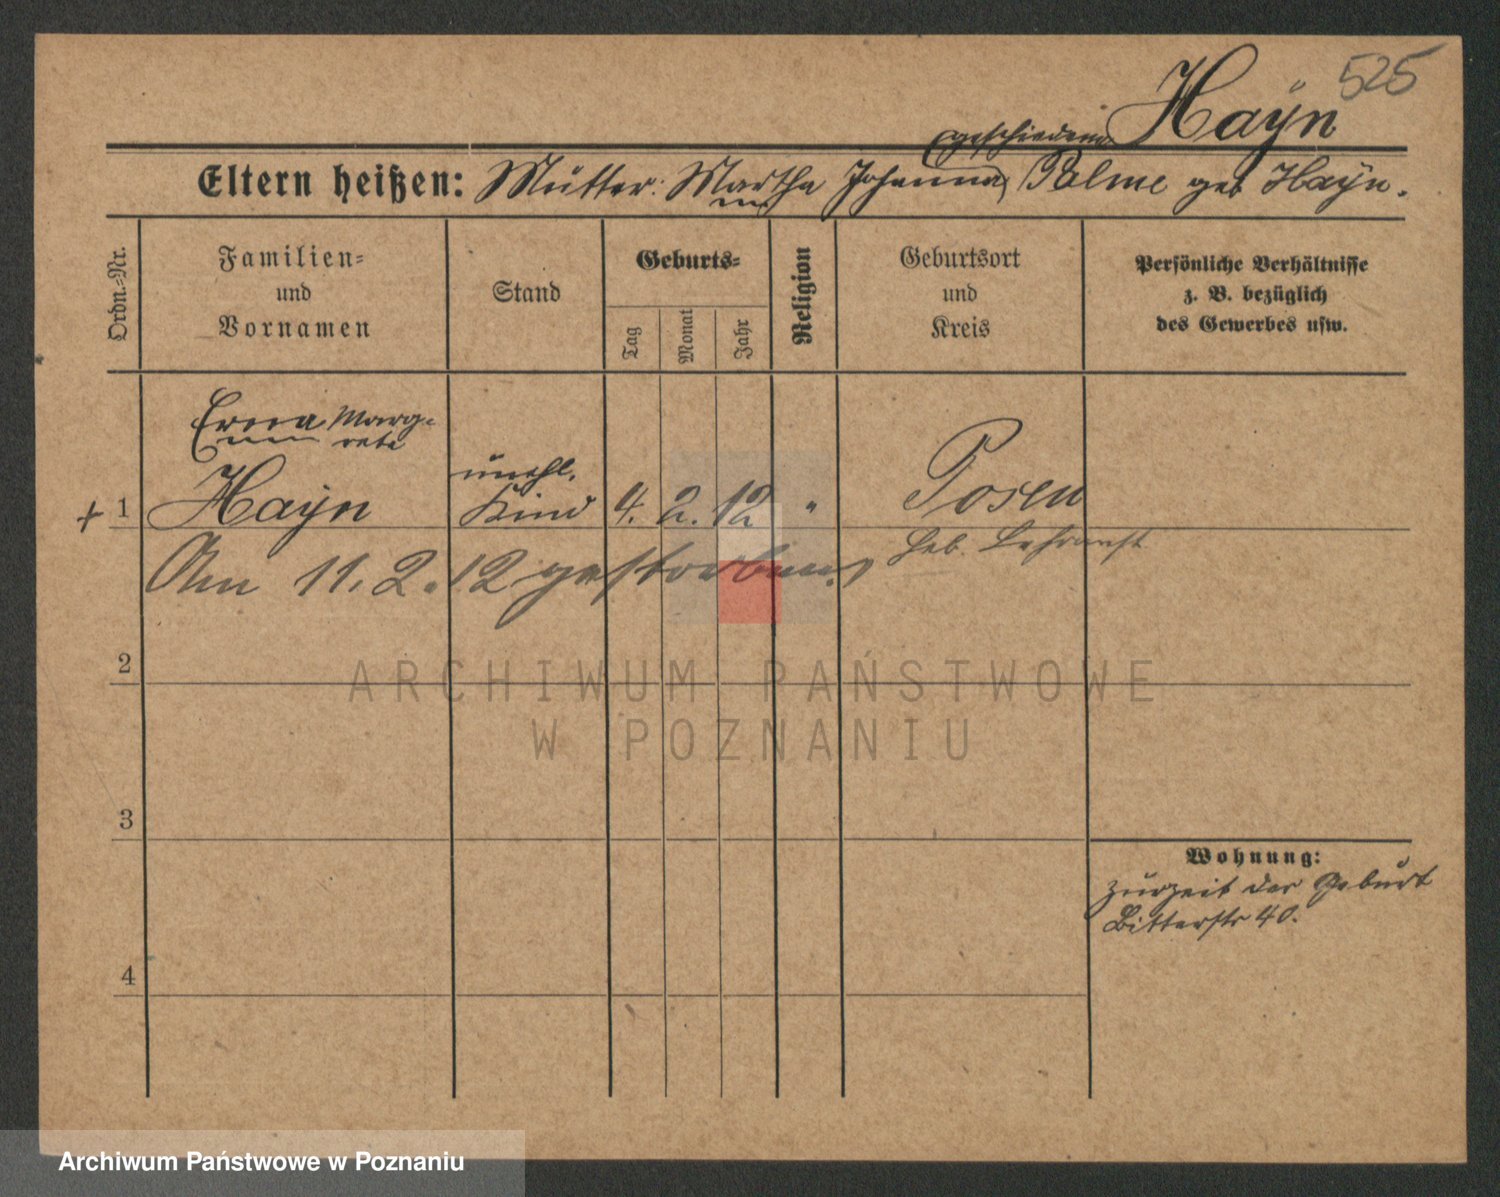 525
Hayn
geschiedene
Eltern heißen: Mutter: Martha Johanna Palme geb Hayn.
Ordn.-Nr.
Familien-
und
Vornamen
Stand
Geburts-
Tag
Monat
Jahr
Religion
Geburtsort
und
Kreis
Persönliche Verhältnisse
z. B. bezüglich
des Gewerbes usw.
Erna Marg-
rete
unehl.
+ 1 Hayn Kind 4. 2. 12 " Posen
Heb. Lehranst.
Am 11. 2. 12 gestorben.
2
ARCHIWUM PAŃSTWOWE
W POZNANIU
3
Wohnung:
zurzeit der Geburt
Bitterstr 40.
4
Archiwum Państwowe w Poznaniu